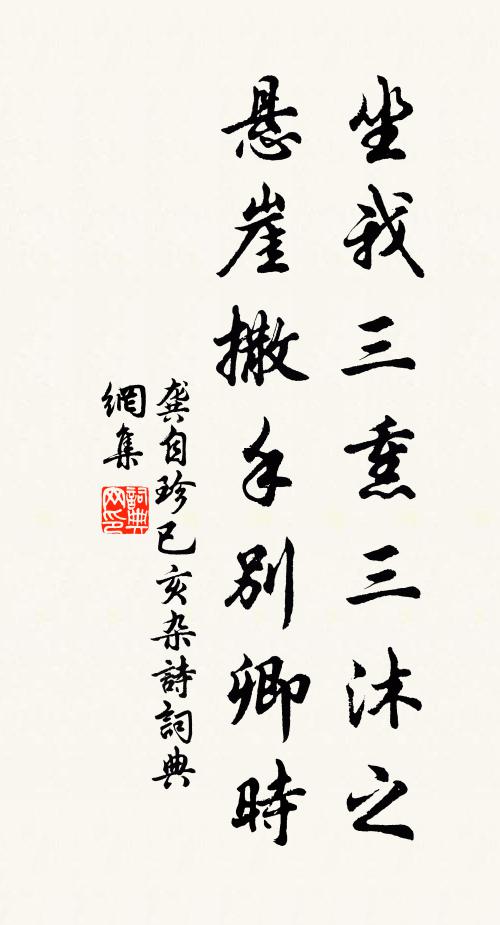 坐我三熏三沐之
悬崖撒手别卿時
龔自珍己亥杂詩詞典
網集
詞典
网印